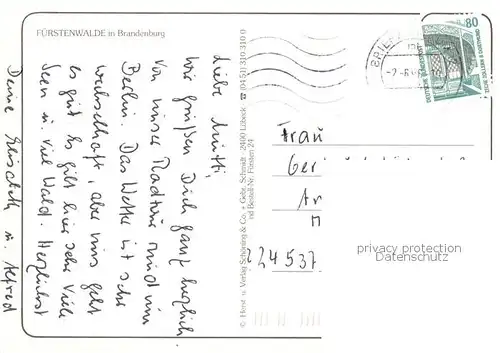 FÜRSTENWALDE in Brandenburg
Liebe Mutti,
wir grüßen Dich ganz herzlich
von unserer Radtour rund um
Berlin. Das Wetter ist sehr
wechselhaft, aber uns geht
es gut. Es gibt hier sehr viele
Seen u. viel Wald. Herzlichst
Deine Elisabeth u. Alfred
© Herst. u. Verlag Schöning & Co. + Gebr. Schmidt · 2400 Lübeck ☎ (0451) 310 310 0
nd Bestell-Nr. Fürsten 24
80
Frau
Ger
Ar
M
224537
privacy protection
Datenschutz